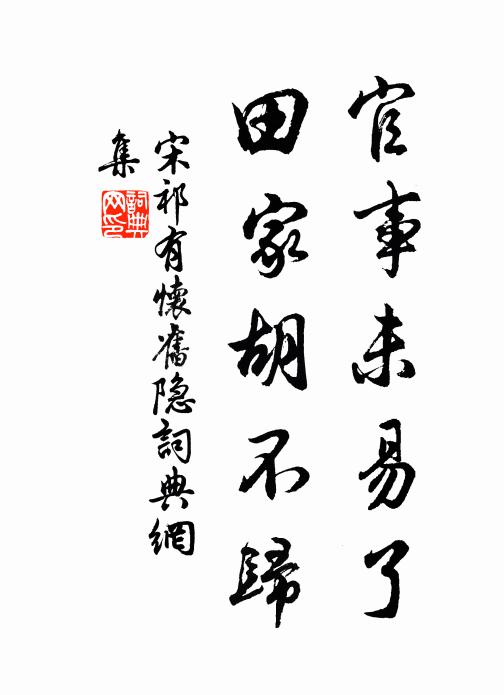 官事未易了
田家胡不歸
宋祁有懷舊隐詞典網
集
詞典
网印